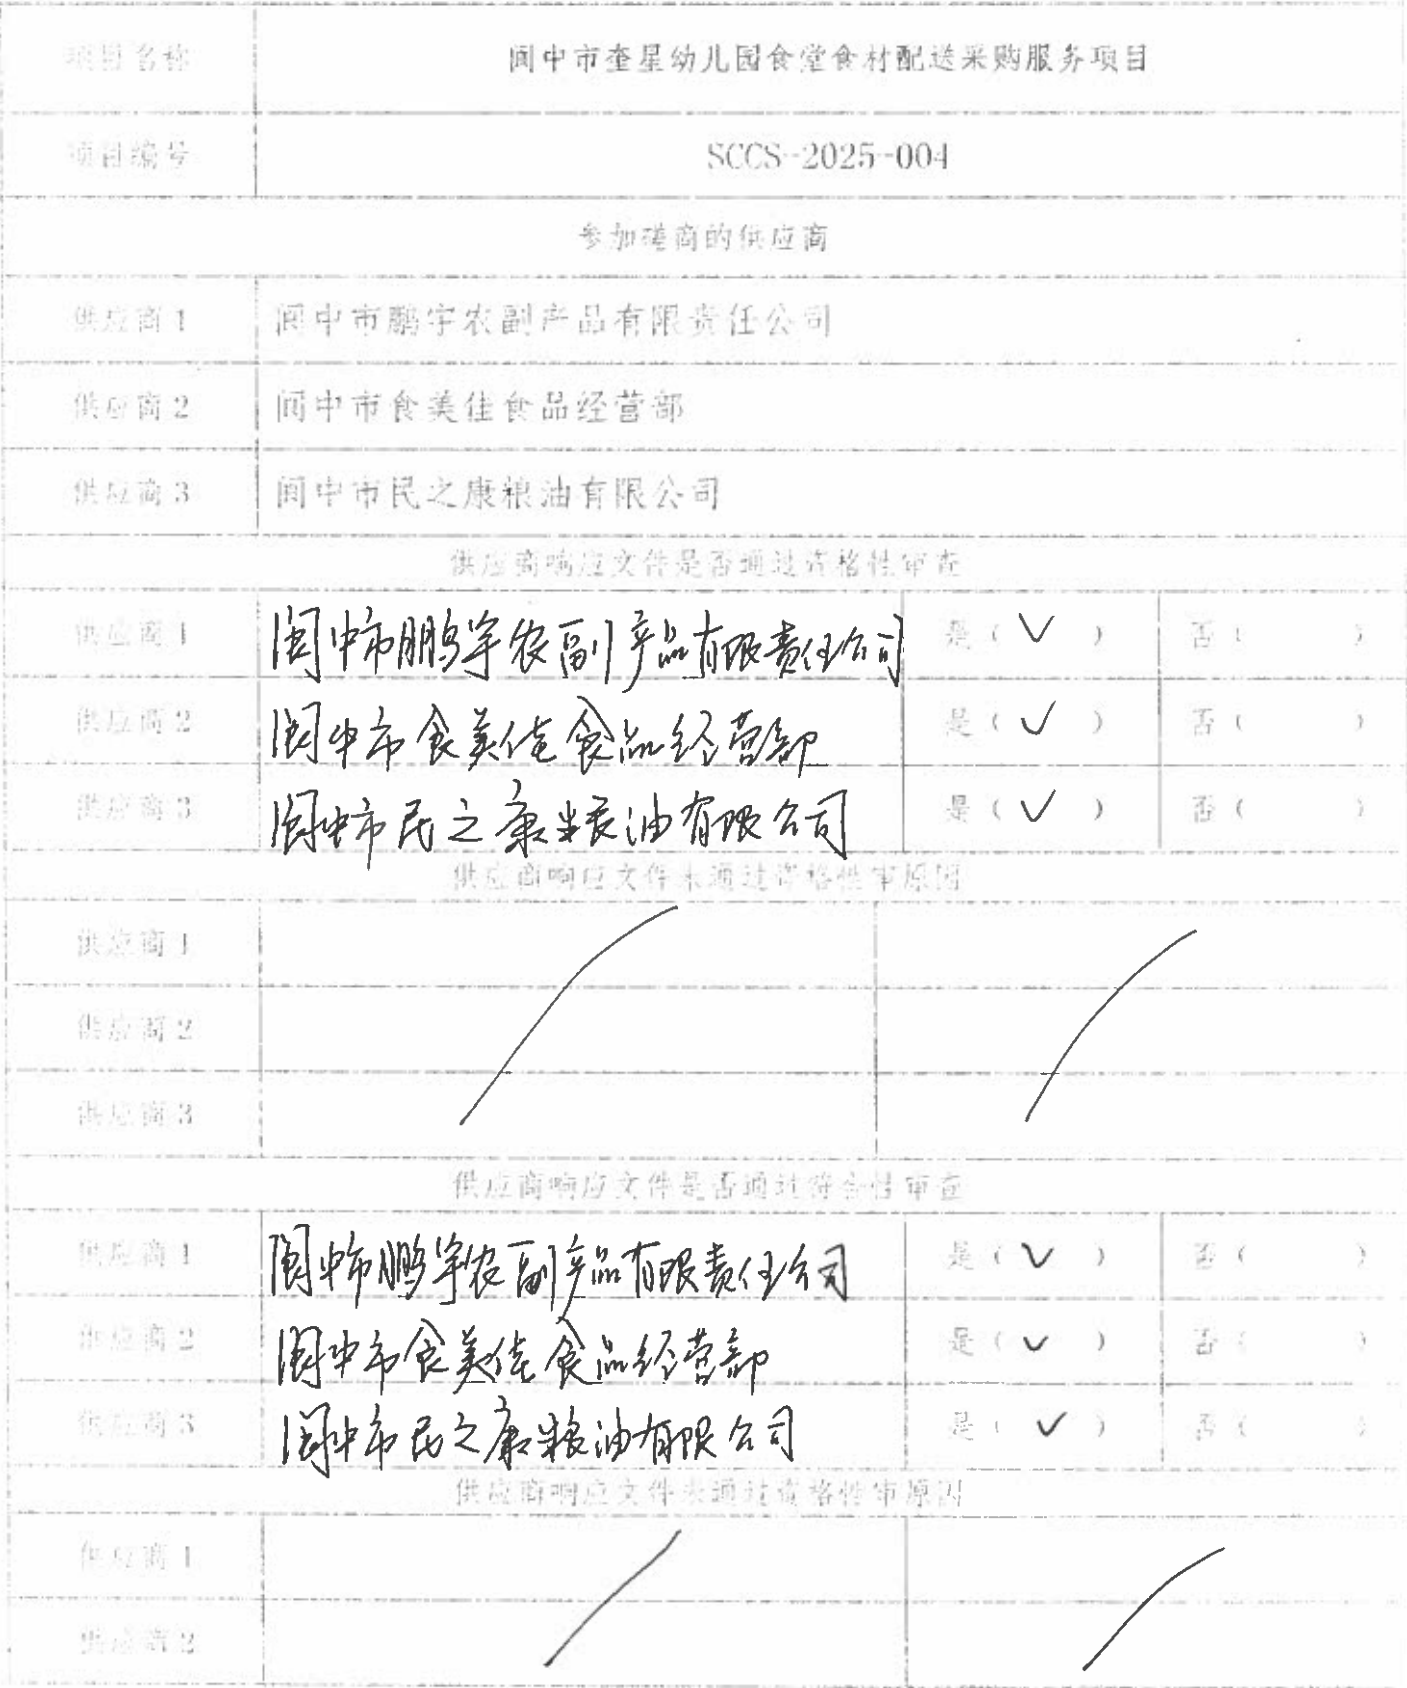 项目名称 阆中市奎星幼儿园食堂食材配送采购服务项目
项目编号 SCCS-2025-004
参加磋商的供应商
供应商1 阆中市鹏宇农副产品有限责任公司
供应商2 阆中市食美佳食品经营部
供应商3 阆中市民之康粮油有限公司
供应商响应文件是否通过资格性审查
供应商1 阆中市鹏宇农副产品有限责任公司 是（✓） 否（ ）
供应商2 阆中市食美佳食品经营部 是（✓） 否（ ）
供应商3 阆中市民之康粮油有限公司 是（✓） 否（ ）
供应商响应文件未通过资格性审原因
供应商1
供应商2
供应商3
供应商响应文件是否通过符合性审查
供应商1 阆中市鹏宇农副产品有限责任公司 是（✓） 否（ ）
供应商2 阆中市食美佳食品经营部 是（✓） 否（ ）
供应商3 阆中市民之康粮油有限公司 是（✓） 否（ ）
供应商响应文件未通过资格性审原因
供应商1
供应商2